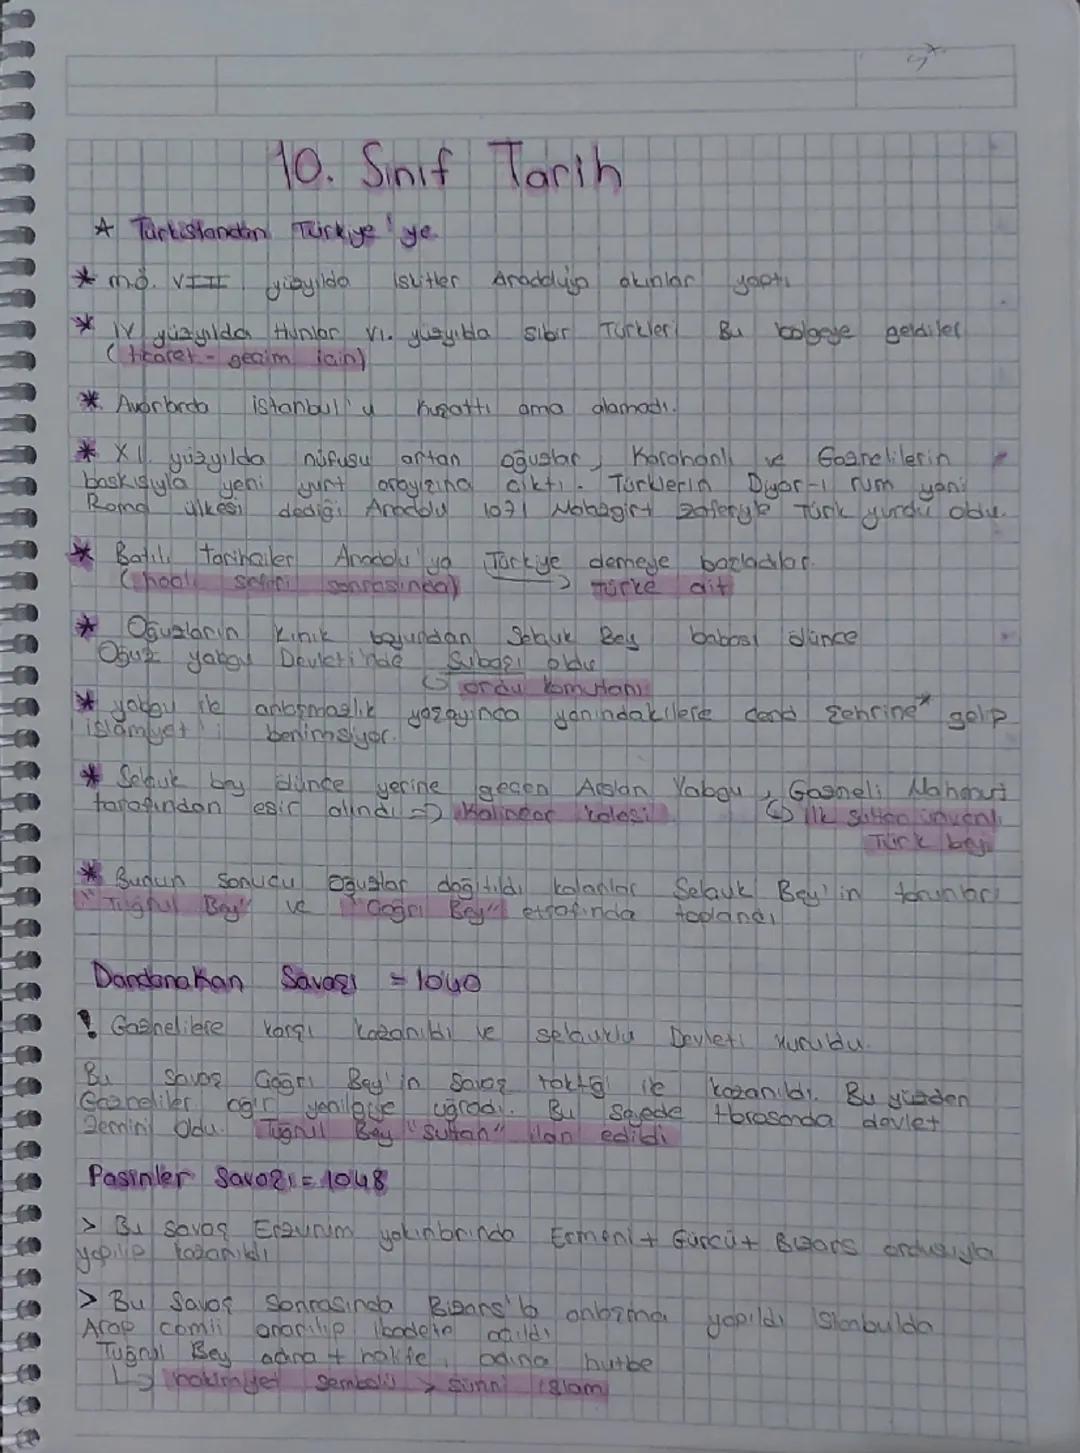 10. Sınıf Tarih
Türkistandan Türkiye'ye
* mö. VIII yüzyılda İskitler Anadoluya akınlar yaptı
* IV yüzyılda Hunlar VI. yüzyılda Sibir Türkleri Bu bölgeye geldiler
(ticaret - geçim için)
* Avarlarda istanbul'u kuşattı ama alamadı.
* XI. yüzyılda nüfusu artan oğuzlar, Karahanlı ve Gaznelilerin
baskısıyla yeni yurt arayışına çıktı. Türklerin Diyar-ı rum yani
Roma ülkesi dediği Anadolu 1071 Malazgirt zaferiyle Türk yurdu oldu.
* Batılı tarihçiler Anadolu'ya Türkiye demeye başladılar.
(haçlı seferi sonrasında) → Türke ait
* Oğuzların Kınık boyundan Selçuk Bey babası ölünce
Oğuz yabgu Devleti'nde Subaşı oldu
↳ ordu komutanı
* yabgu ile anlaşmazlık yaşayınca yanındakilerle cend şehrine* gelip
islamiyet'i benimsiyor.
* Selçuk bey ölünce yerine geçen Arslan Yabgu, Gazneli Mahmut
tarafından esir alındı => Kalincar kalesi ↳ ilk sultan ünvanlı
Türk beyi
* Bunun sonucu oğuzlar dağıtıldı kalanlar Selçuk Bey'in torunları
"Tuğrul Bey" ve "Çağrı Bey" etrafında toplandı
Dandanakan Savaşı = 1040
! Gaznelilere karşı kazanıldı ve selçuklu Devleti kuruldu.
Bu savaş Çağrı Bey'in Savaş taktiği ile kazanıldı. Bu yüzden
Gazneliler ağır yenilgiye uğradı. Bu sayede Horasanda devlet
zemini oldu. Tuğrul Bey "Sultan" ilan edildi
Pasinler Savaşı = 1048
> Bu savaş Erzurum yakınlarında Ermeni + Gürcü + Bizans ordusuyla
yapılıp kazanıldı
> Bu Savaş Sonrasında Bizans'la anlaşma yapıldı istanbulda
Arap camii onarılıp ibadete açıldı
Tuğrul Bey adına + halife adına hutbe
↳ hakimiyet sembolü > sünni islam